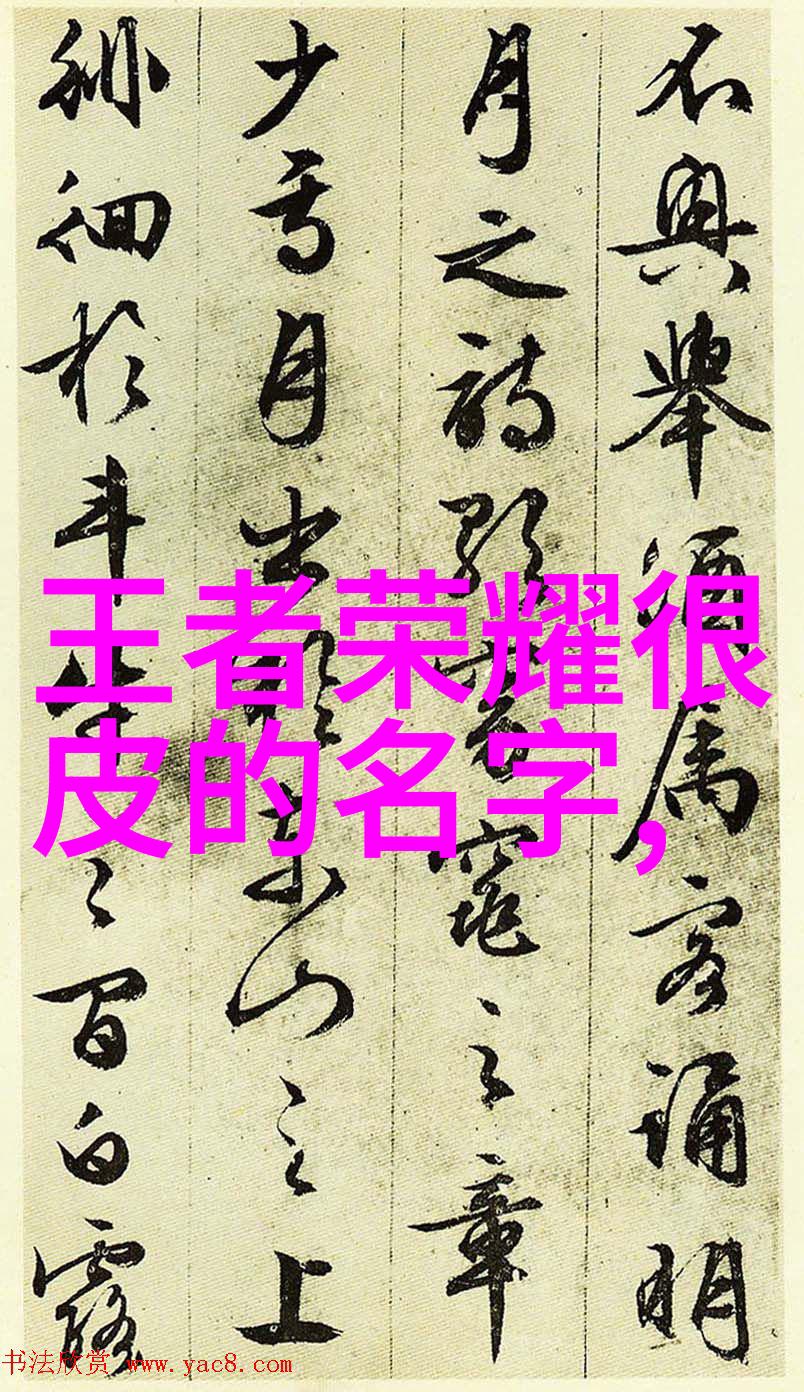 不興舉酒屬客誦明
月之詩歌窈窕之章
少焉月出於東山之上
徘徊於斗牛之間白露
王者荣耀很
皮的名字,
书法欣赏 www.yac8.com